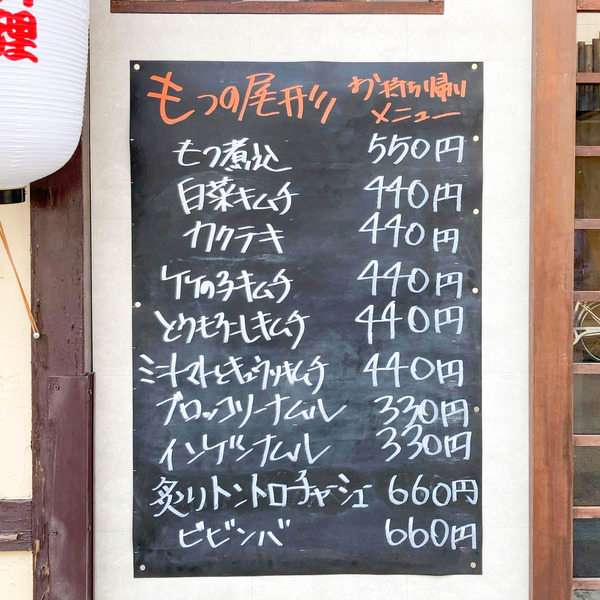 理
もつの尾形 お持ち帰り
メニュー
もつ煮込 550円
白菜キムチ 440円
カクテキ 440円
竹の子キムチ 440円
とうもろこしキムチ 440円
ミニトマトとキュウリキムチ 440円
ブロッコリーナムル 330円
インゲンナムル 330円
炙りトントロチャーシュー 660円
ビビンバ 660円